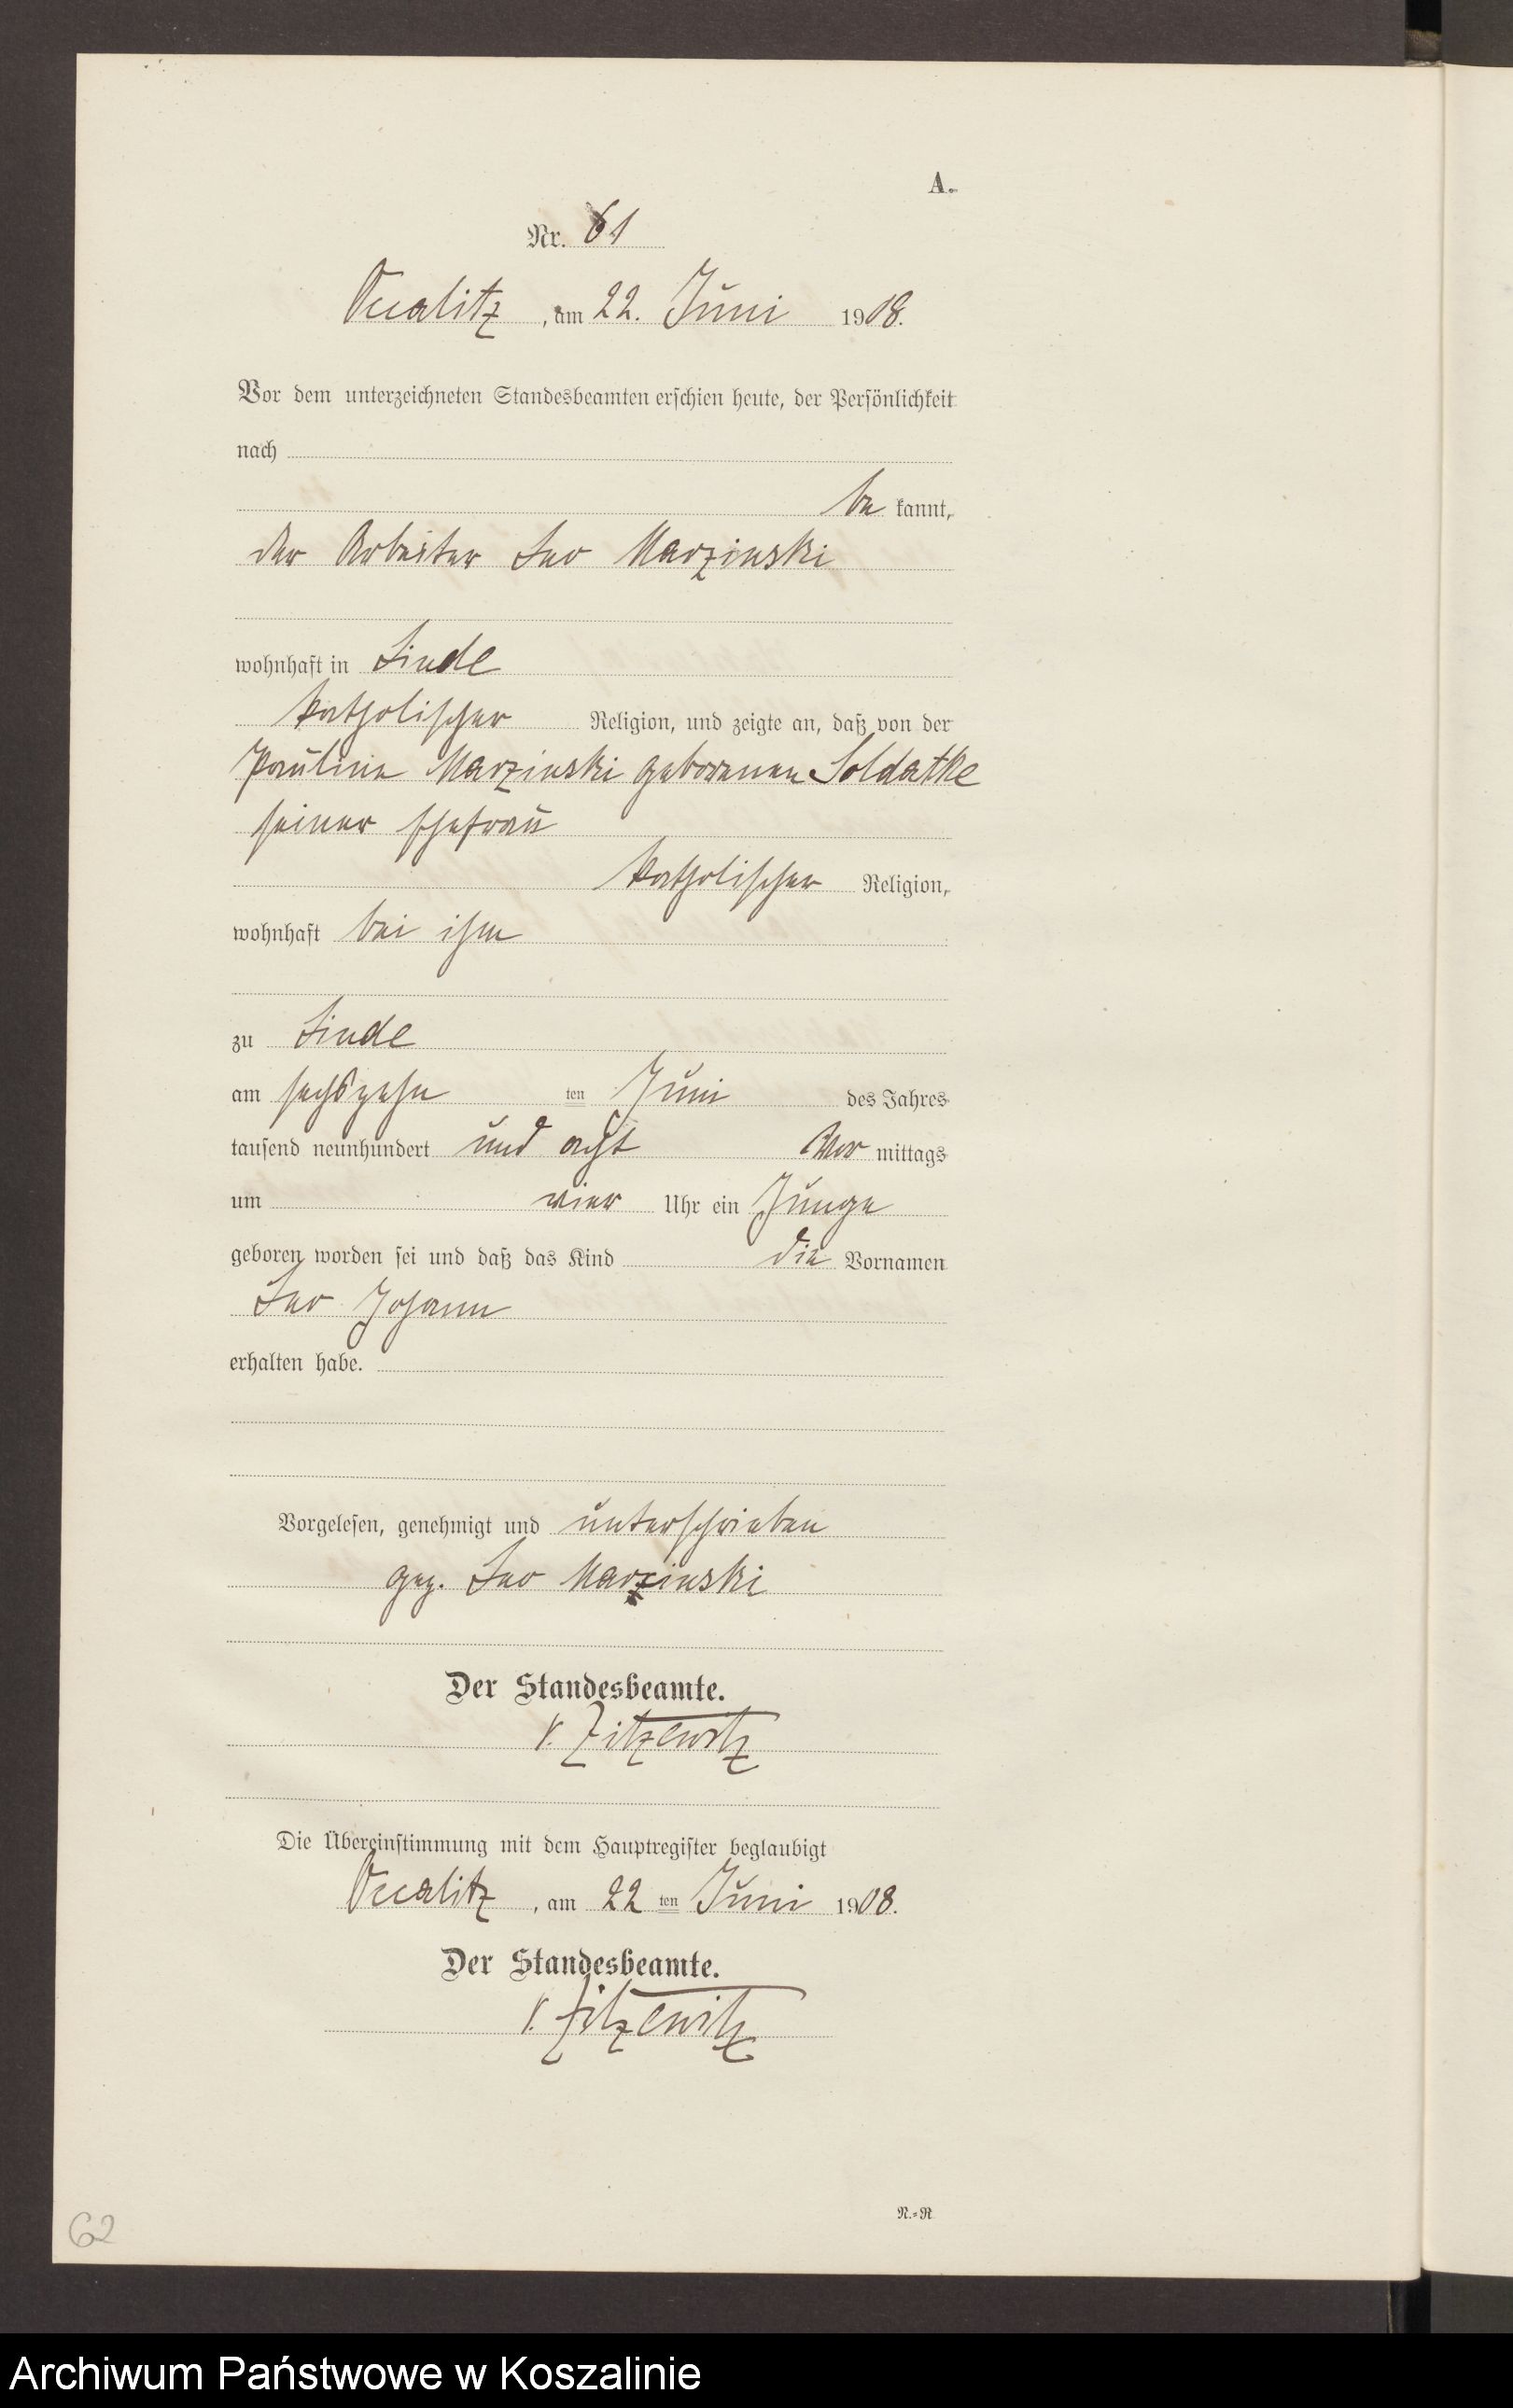 A.
Nr. 61
Vixalitz, am 22. Juni 1908.
Vor dem unterzeichneten Standesbeamten erschien heute, der Persönlichkeit
nach
be kannt,
der Arbeiter Leo Marzinski
wohnhaft in Linde
katholischer Religion, und zeigte an, daß von der
Pauline Marzinski geborenen Soldatke
seiner Ehefrau
katholischer Religion,
wohnhaft bei ihm
zu Linde
am sechszehn ten Juni des Jahres
tausend neunhundert und acht Vor mittags
um vier Uhr ein Junge
geboren worden sei und daß das Kind die Vornamen
Leo Johann
erhalten habe.
Vorgelesen, genehmigt und unterschrieben
gez. Leo Marzinski
Der Standesbeamte.
v. Zitzewitz
Die Übereinstimmung mit dem Hauptregister beglaubigt
, am 22 ten Juni 1908.
Der Standesbeamte.
v. Zitzewitz
N.=R
62
Archiwum Państwowe w Koszalinie